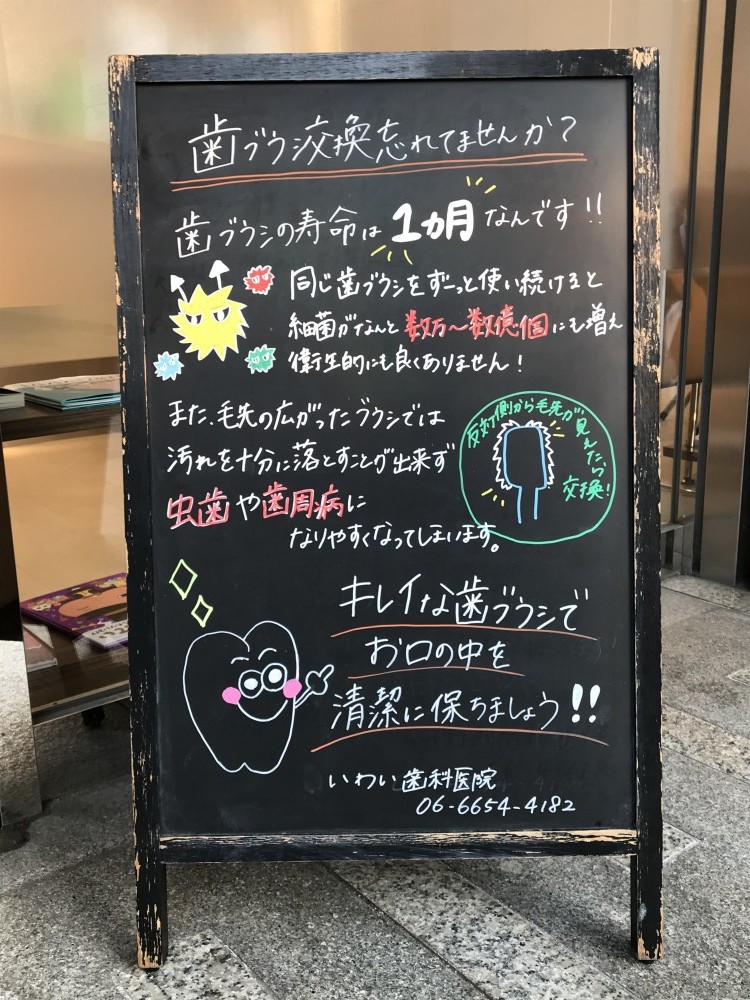 歯ブラシ交換忘れてませんか？
歯ブラシの寿命は1ヵ月なんです!!
同じ歯ブラシをずーっと使い続けると
細菌がなんと数万〜数億個にも増え
衛生的にも良くありません!
また、毛先の広がったブラシでは
汚れを十分に落とすことが出来ず
虫歯や歯周病に
なりやすくなってしまいます。
反対側から毛先が見えたら
交換!
キレイな歯ブラシで
お口の中を
清潔に保ちましょう!!
いわい歯科医院
06-6654-4182